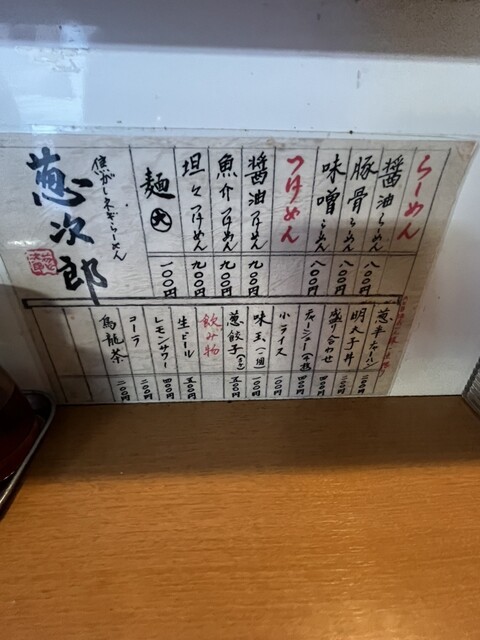 らーめん
醤油らーめん 八〇〇円
豚骨らーめん 八〇〇円
味噌らーめん 八〇〇円
つけめん
醤油つけめん 九〇〇円
魚介つけめん 九〇〇円
坦々つけめん 九〇〇円
麺大 一〇〇円
焦がしネギらーめん
葱次郎
明太子丼
盛り合わせ
チャーシュー
小ライス 一〇〇円
味玉(一個) 一〇〇円
葱餃子 五〇〇円
飲み物
生ビール 五〇〇円
レモンサワー 四〇〇円
コーラ 二〇〇円
烏龍茶 二〇〇円